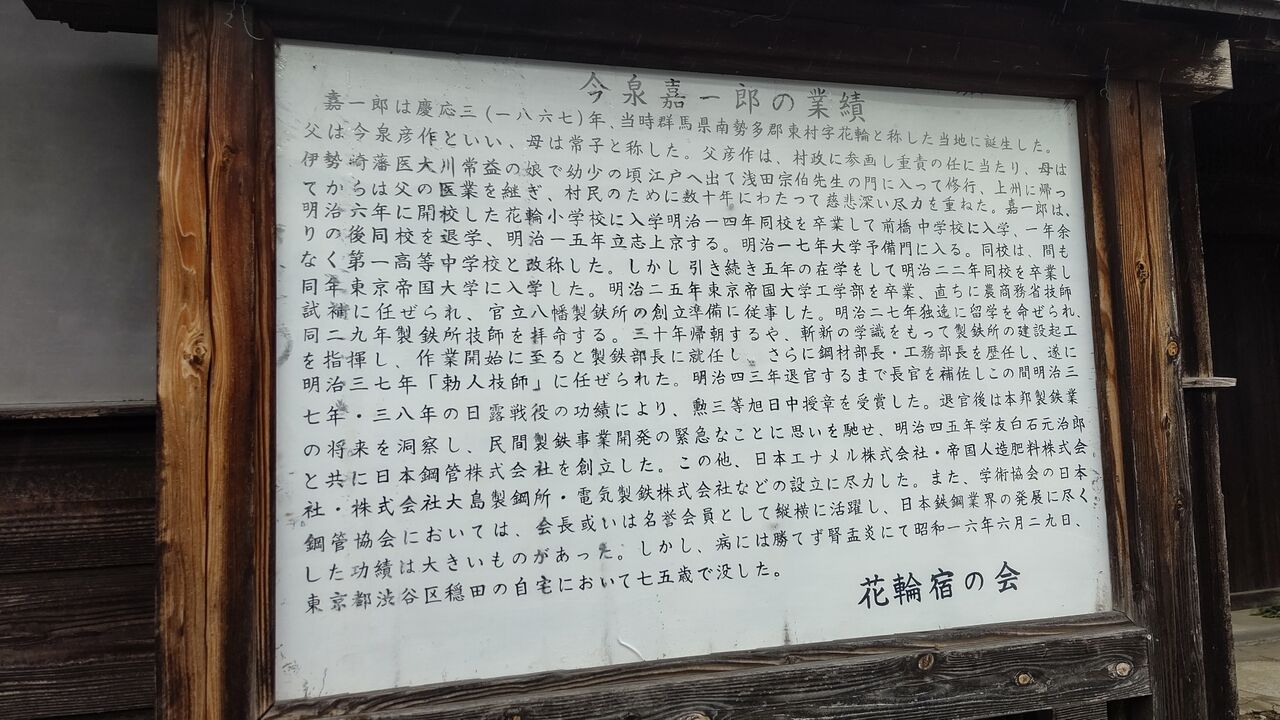 今泉嘉一郎の業績
嘉一郎は慶応三(一八六七)年、当時群馬県南勢多郡東村字花輪と称した当地に誕生した。
父は今泉彦作といい、母は常子と称した。父彦作は、村政に参画し重責の任に当たり、母は
伊勢崎藩医大川常益の娘で幼少の頃江戸へ出て浅田宗伯先生の門に入って修行、上州に帰っ
てからは父の医業を継ぎ、村民のために数十年にわたって慈悲深い尽力を重ねた。嘉一郎は、
明治六年に開校した花輪小学校に入学明治一四年同校を卒業して前橋中学校に入学、一年余
りの後同校を退学、明治一五年立志上京する。明治一七年大学予備門に入る。同校は、間も
なく第一高等中学校と改称した。しかし引き続き五年の在学をして明治二二年同校を卒業し
同年東京帝国大学に入学した。明治二五年東京帝国大学工学部を卒業、直ちに農商務省技師
試補に任ぜられ、官立八幡製鉄所の創立準備に従事した。明治二七年独逸に留学を命ぜられ、
同二九年製鉄所技師を拝命する。三十年帰朝するや、斬新の学識をもって製鉄所の建設起工
を指揮し、作業開始に至ると製鉄部長に就任し、さらに鋼材部長・工務部長を歴任し、遂に
明治三七年「勅人技師」に任ぜられた。明治四三年退官するまで長官を補佐しこの間明治三
七年・三八年の日露戦役の功績により、勲三等旭日中授章を受賞した。退官後は本邦製鉄業
の将来を洞察し、民間製鉄事業開発の緊急なことに思いを馳せ、明治四五年学友白石元治郎
と共に日本鋼管株式会社を創立した。この他、日本エナメル株式会社・帝国人造肥料株式会
社・株式会社大島製鋼所・電気製鉄株式会社などの設立に尽力した。また、学術協会の日本
鋼管協会においては、会長或いは名誉会員として縦横に活躍し、日本鉄鋼業界の発展に尽く
した功績は大きいものがあった。しかし、病には勝てず腎盂炎にて昭和一六年六月二九日、
東京都渋谷区穏田の自宅において七五歳で没した。
花輪宿の会